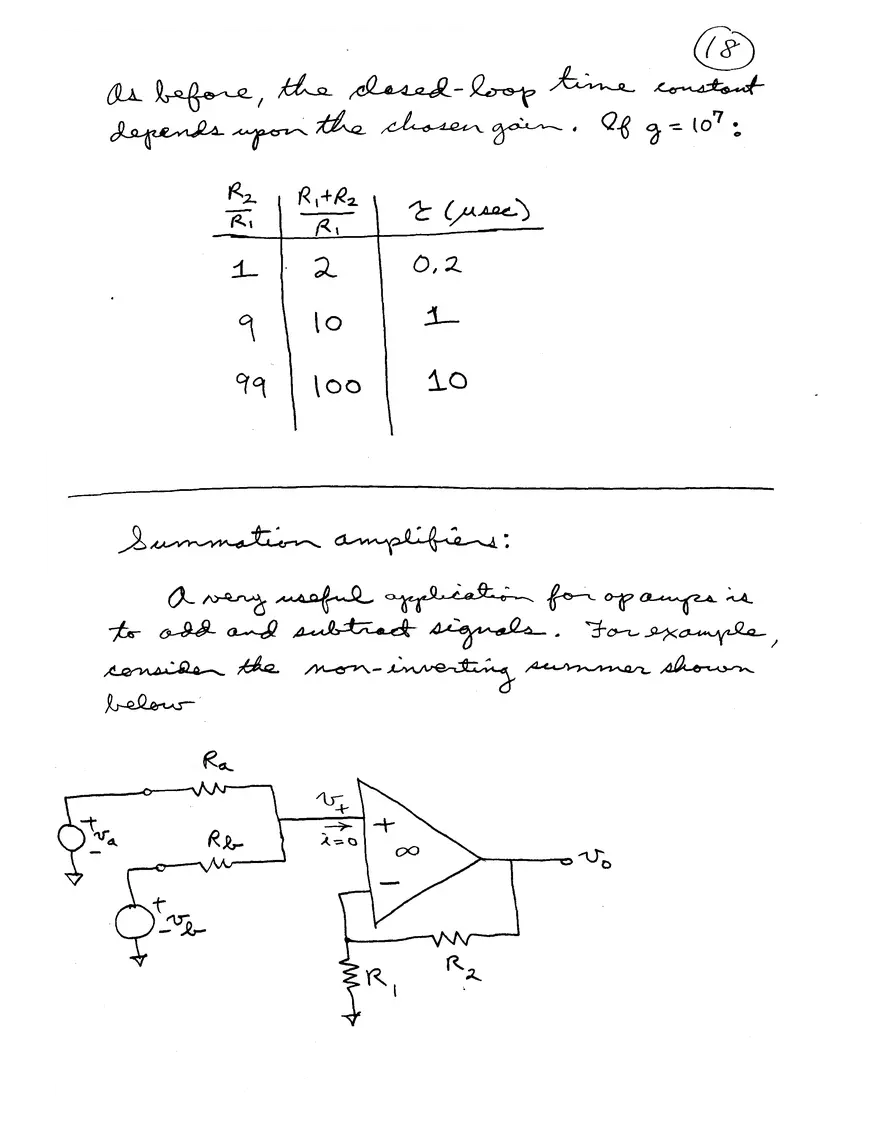 18
As before, the closed-loop time constant
depends upon the chosen gain. If g = 10⁷:
R₂/R₁ (R₁+R₂)/R₁ τ (μsec)
1 2 0.2
9 10 1
99 100 10
Summation amplifiers:
A very useful application for op amps is
to add and subtract signals. For example,
consider the non-inverting summer shown
below
Ra
v₊
+ va -
Rb
i=0
+
∞
-
v₀
+ vb -
R₂
R₁